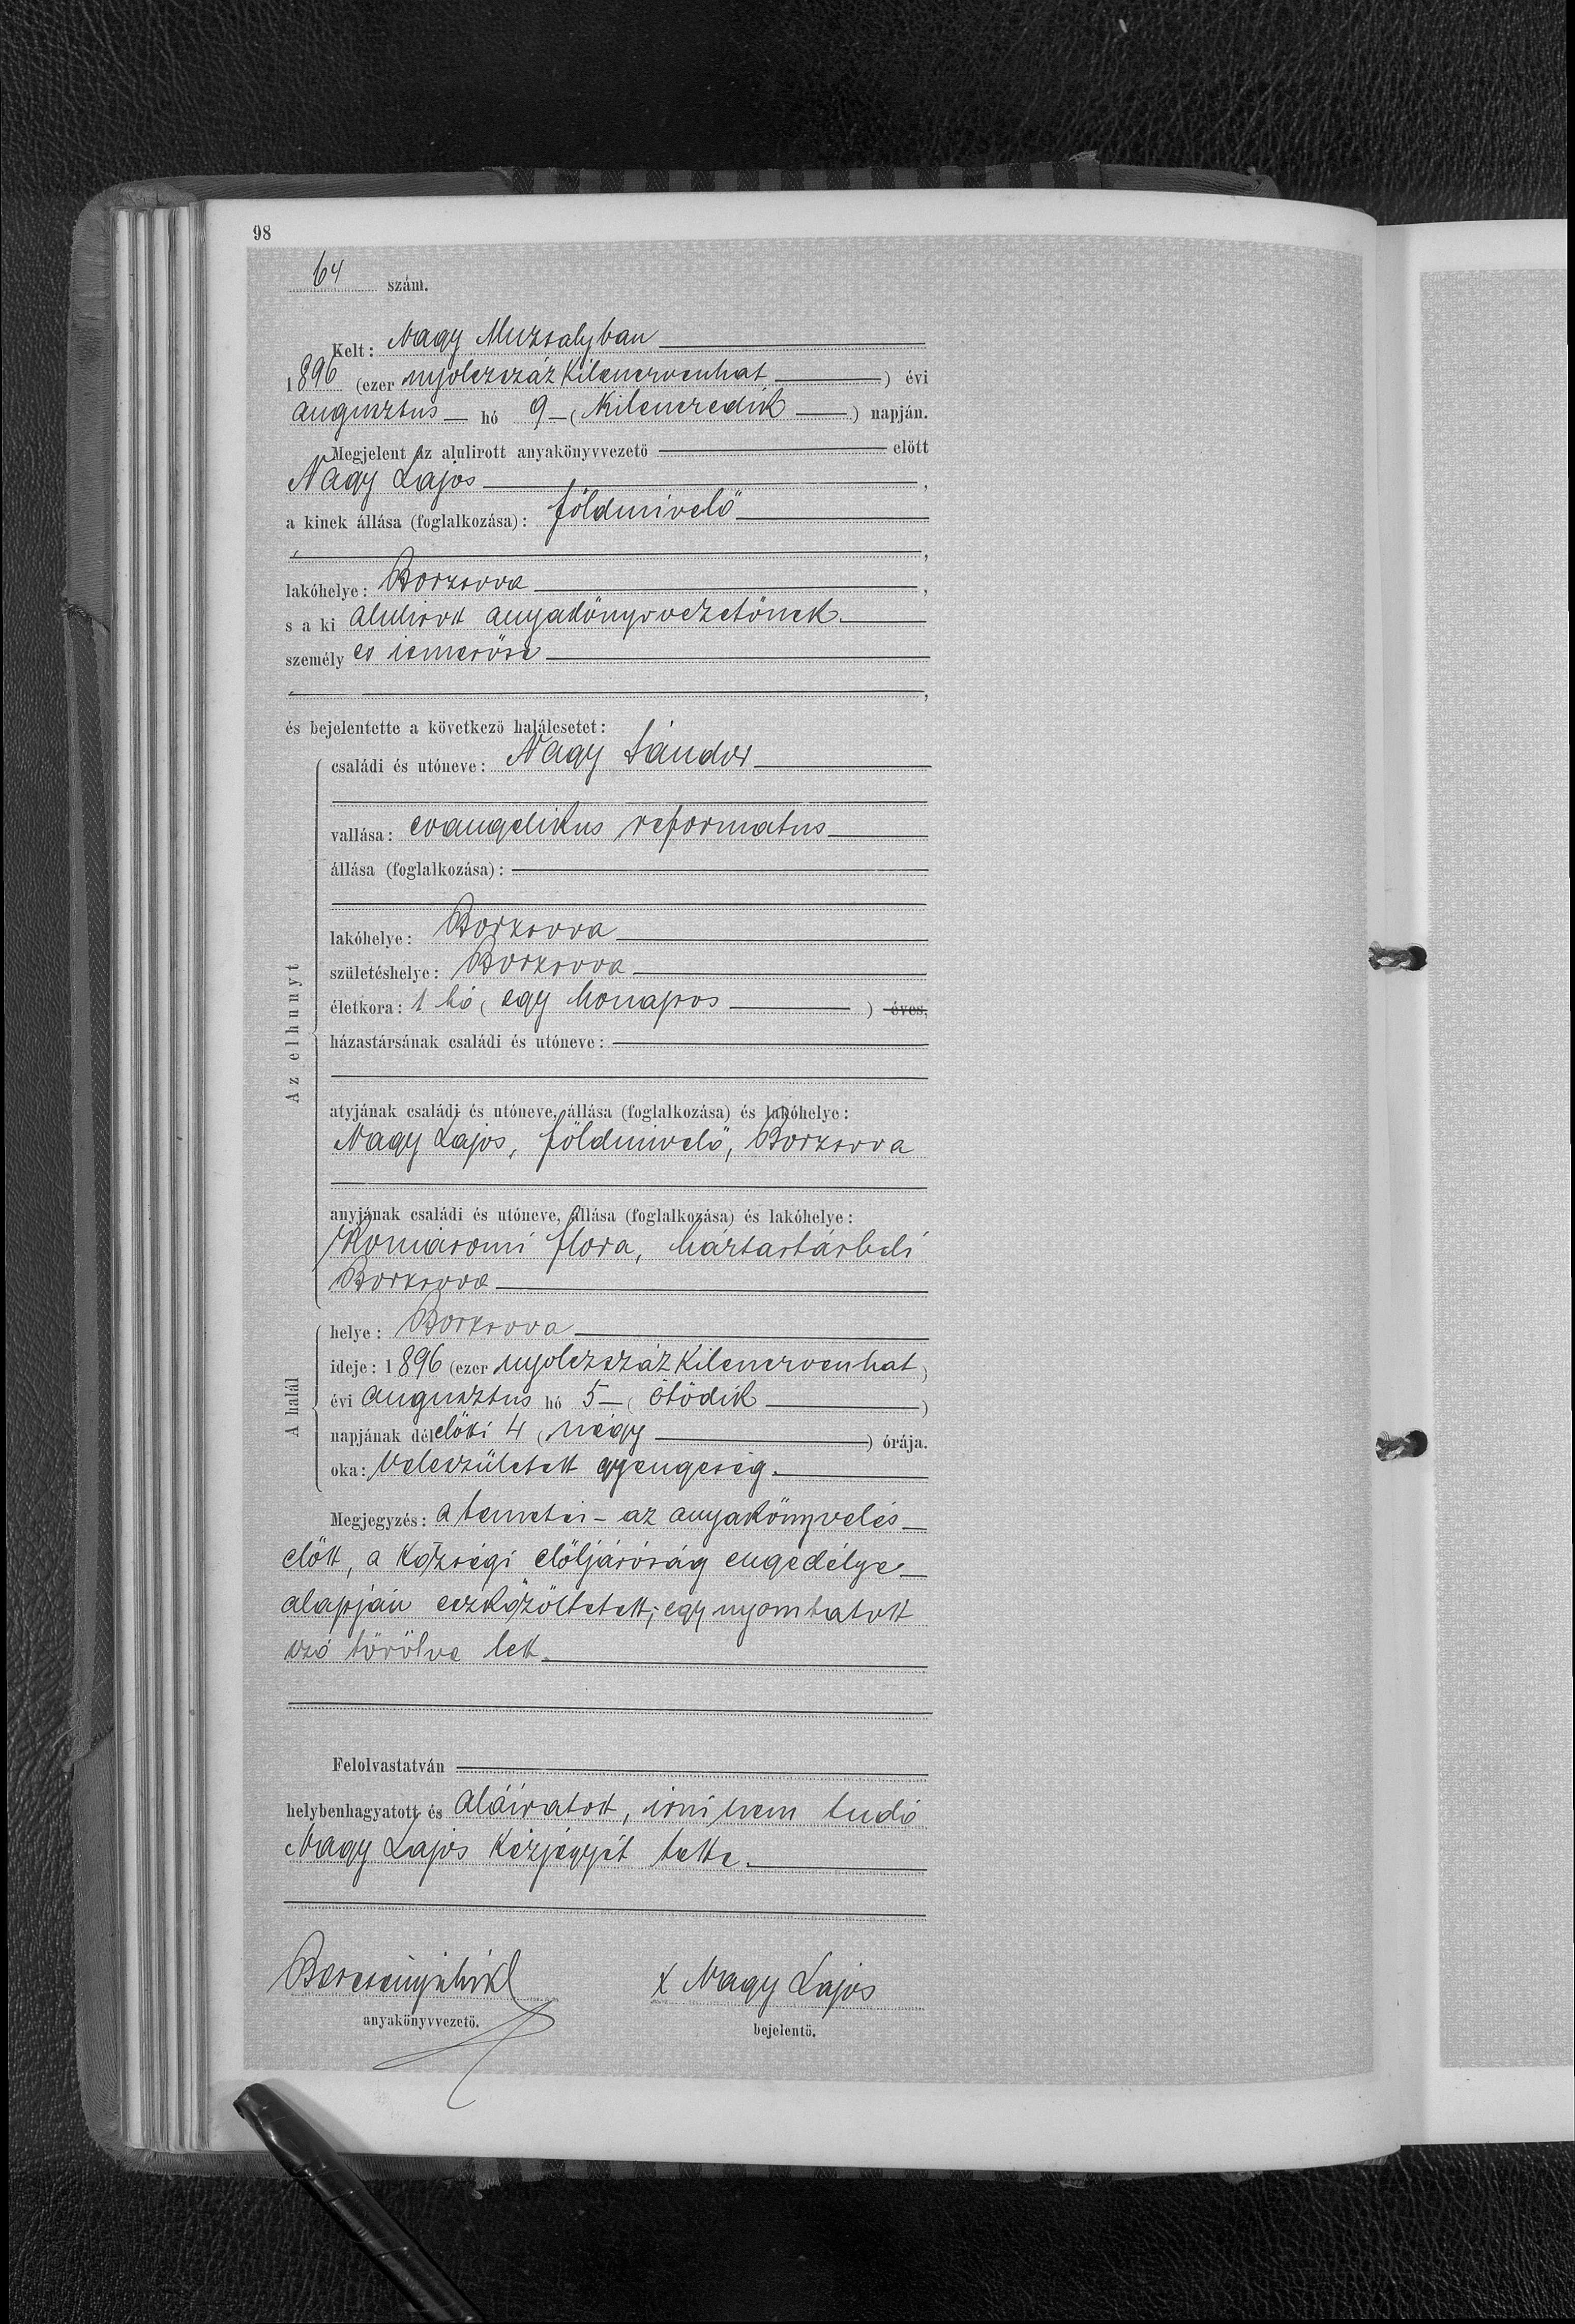 98
64 szám.
Kelt: Nagy Muzsalyban
1896 (ezer nyolczszáz kilenczvenhat) évi
augusztus hó 9 – (kilenczedik) napján.
Megjelent az alulirott anyakönyvvezető előtt
Nagy Lajos,
a kinek állása (foglalkozása): földmivelő
,
lakóhelye: Borzsova,
s a ki alulirott anyakönyvvezetőnek
személyes ismerőse
,
és bejelentette a következő halálesetet:
Az elhunyt
családi és utóneve: Nagy Sándor
vallása: evangelikus reformatus
állása (foglalkozása):
lakóhelye: Borzsova
születéshelye: Borzsova
életkora: 1 hó (egy honapos) éves,
házastársának családi és utóneve:
atyjának családi és utóneve, állása (foglalkozása) és lakóhelye:
Nagy Lajos, földmivelő, Borzsova
anyjának családi és utóneve, állása (foglalkozása) és lakóhelye:
Komáromi Flora, háztartásbeli
Borzsova
A halál
helye: Borzsova
ideje: 1896 (ezer nyolczszáz kilenczvenhat)
évi augusztus hó 5 – (ötödik)
napjának délelötti 4 (négy) órája.
oka: Veleszületett gyengeség.
Megjegyzés: a temetés – az anyakönyvelés
előtt, a községi elöljáróság engedélye
alapján eszközöltetett; egy nyomtatott
szó törölve lett.
Felolvastatván
helybenhagyatott és aláiratott, irni nem tudó
Nagy Lajos kézjegyét tette.
x Nagy Lajos
anyakönyvvezető.
bejelentő.